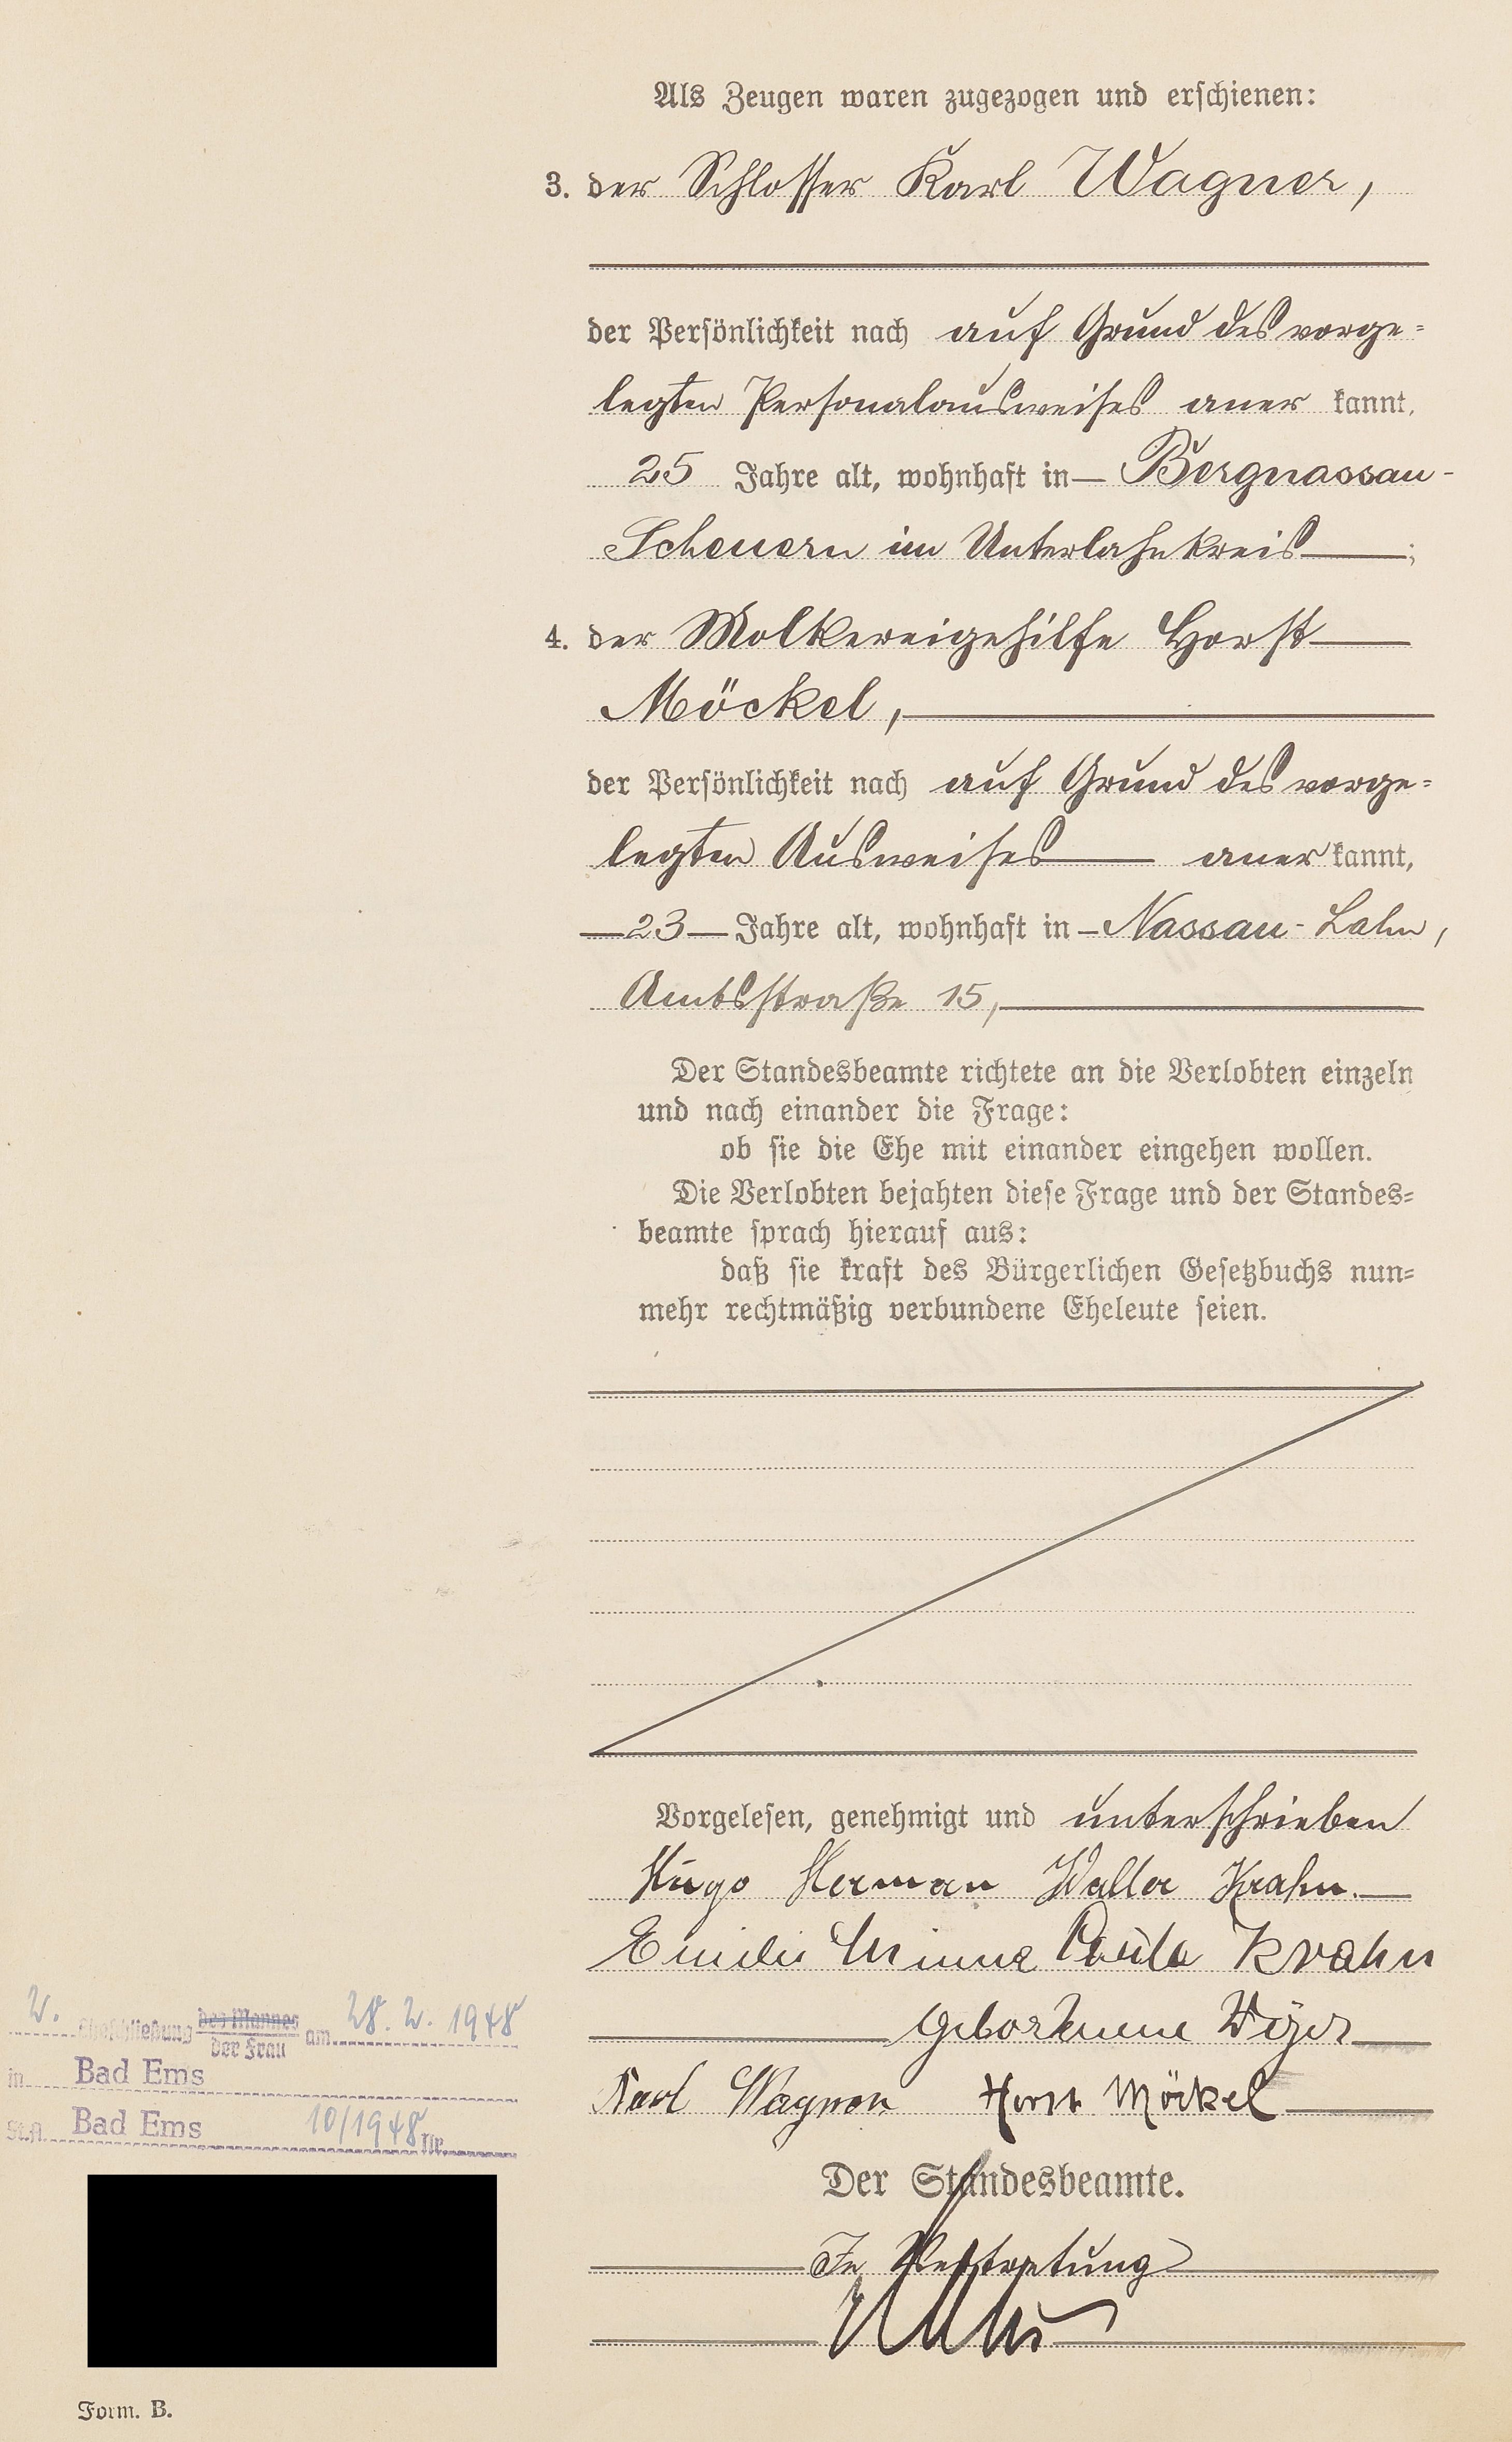 Als Zeugen waren zugezogen und erschienen:
3. der Schlosser Karl Wagner,
der Persönlichkeit nach auf Grund des vorge=
legten Personalausweises aner kannt,
25 Jahre alt, wohnhaft in — Bergnassau-
Scheuern im Unterlahnkreis —;
4. der Molkereigehilfe Horst —
Möckel, —
der Persönlichkeit nach auf Grund des vorge=
legten Ausweises — aner kannt,
— 23 — Jahre alt, wohnhaft in — Nassau-Lahn,
Amtsstraße 15, —
Der Standesbeamte richtete an die Verlobten einzeln
und nach einander die Frage:
ob sie die Ehe mit einander eingehen wollen.
Die Verlobten bejahten diese Frage und der Standes=
beamte sprach hierauf aus:
daß sie kraft des Bürgerlichen Gesetzbuchs nun=
mehr rechtmäßig verbundene Eheleute seien.
Vorgelesen, genehmigt und unterschrieben
Hugo Herman Walter Krahn. —
Emilie Minna Paula Krahn
— geborene —
Karl Wagner Horst Möckel —
Der Standesbeamte.
In Vertretung
2. Eheschließung des Mannes
der Frau am 28. 2. 1948
in Bad Ems
St.A. Bad Ems 10/1948 Nr.
Form. B.